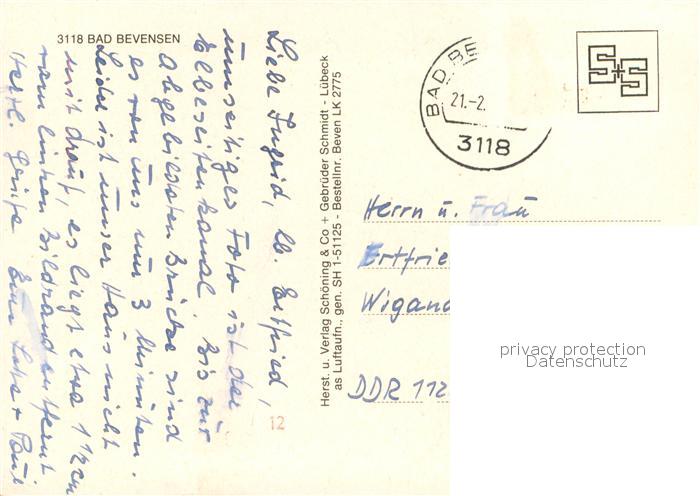 3118 BAD BEVENSEN
Liebe Ingrid, lb. Ertfried,
umseitiges Foto ist der
Elbeseitenkanal. Bis zur
abgebildeten Brücke sind
es von uns nur 3 Minuten.
Leider ist unser Haus nicht
mit drauf, es liegt etwa 1 1/2 cm
vom linken Bildrand entfernt
Herzl. Grüße Eure +
Herst. u. Verlag Schöning & Co + Gebrüder Schmidt - Lübeck
as Luftaufn., gen. SH 1-51125 - Bestellnr. Beven LK 2775
12
BAD BE
21.-2.
3118
S+S
Herrn u. Frau
Ertfrie
Wigand
DDR 112
privacy protection
Datenschutz